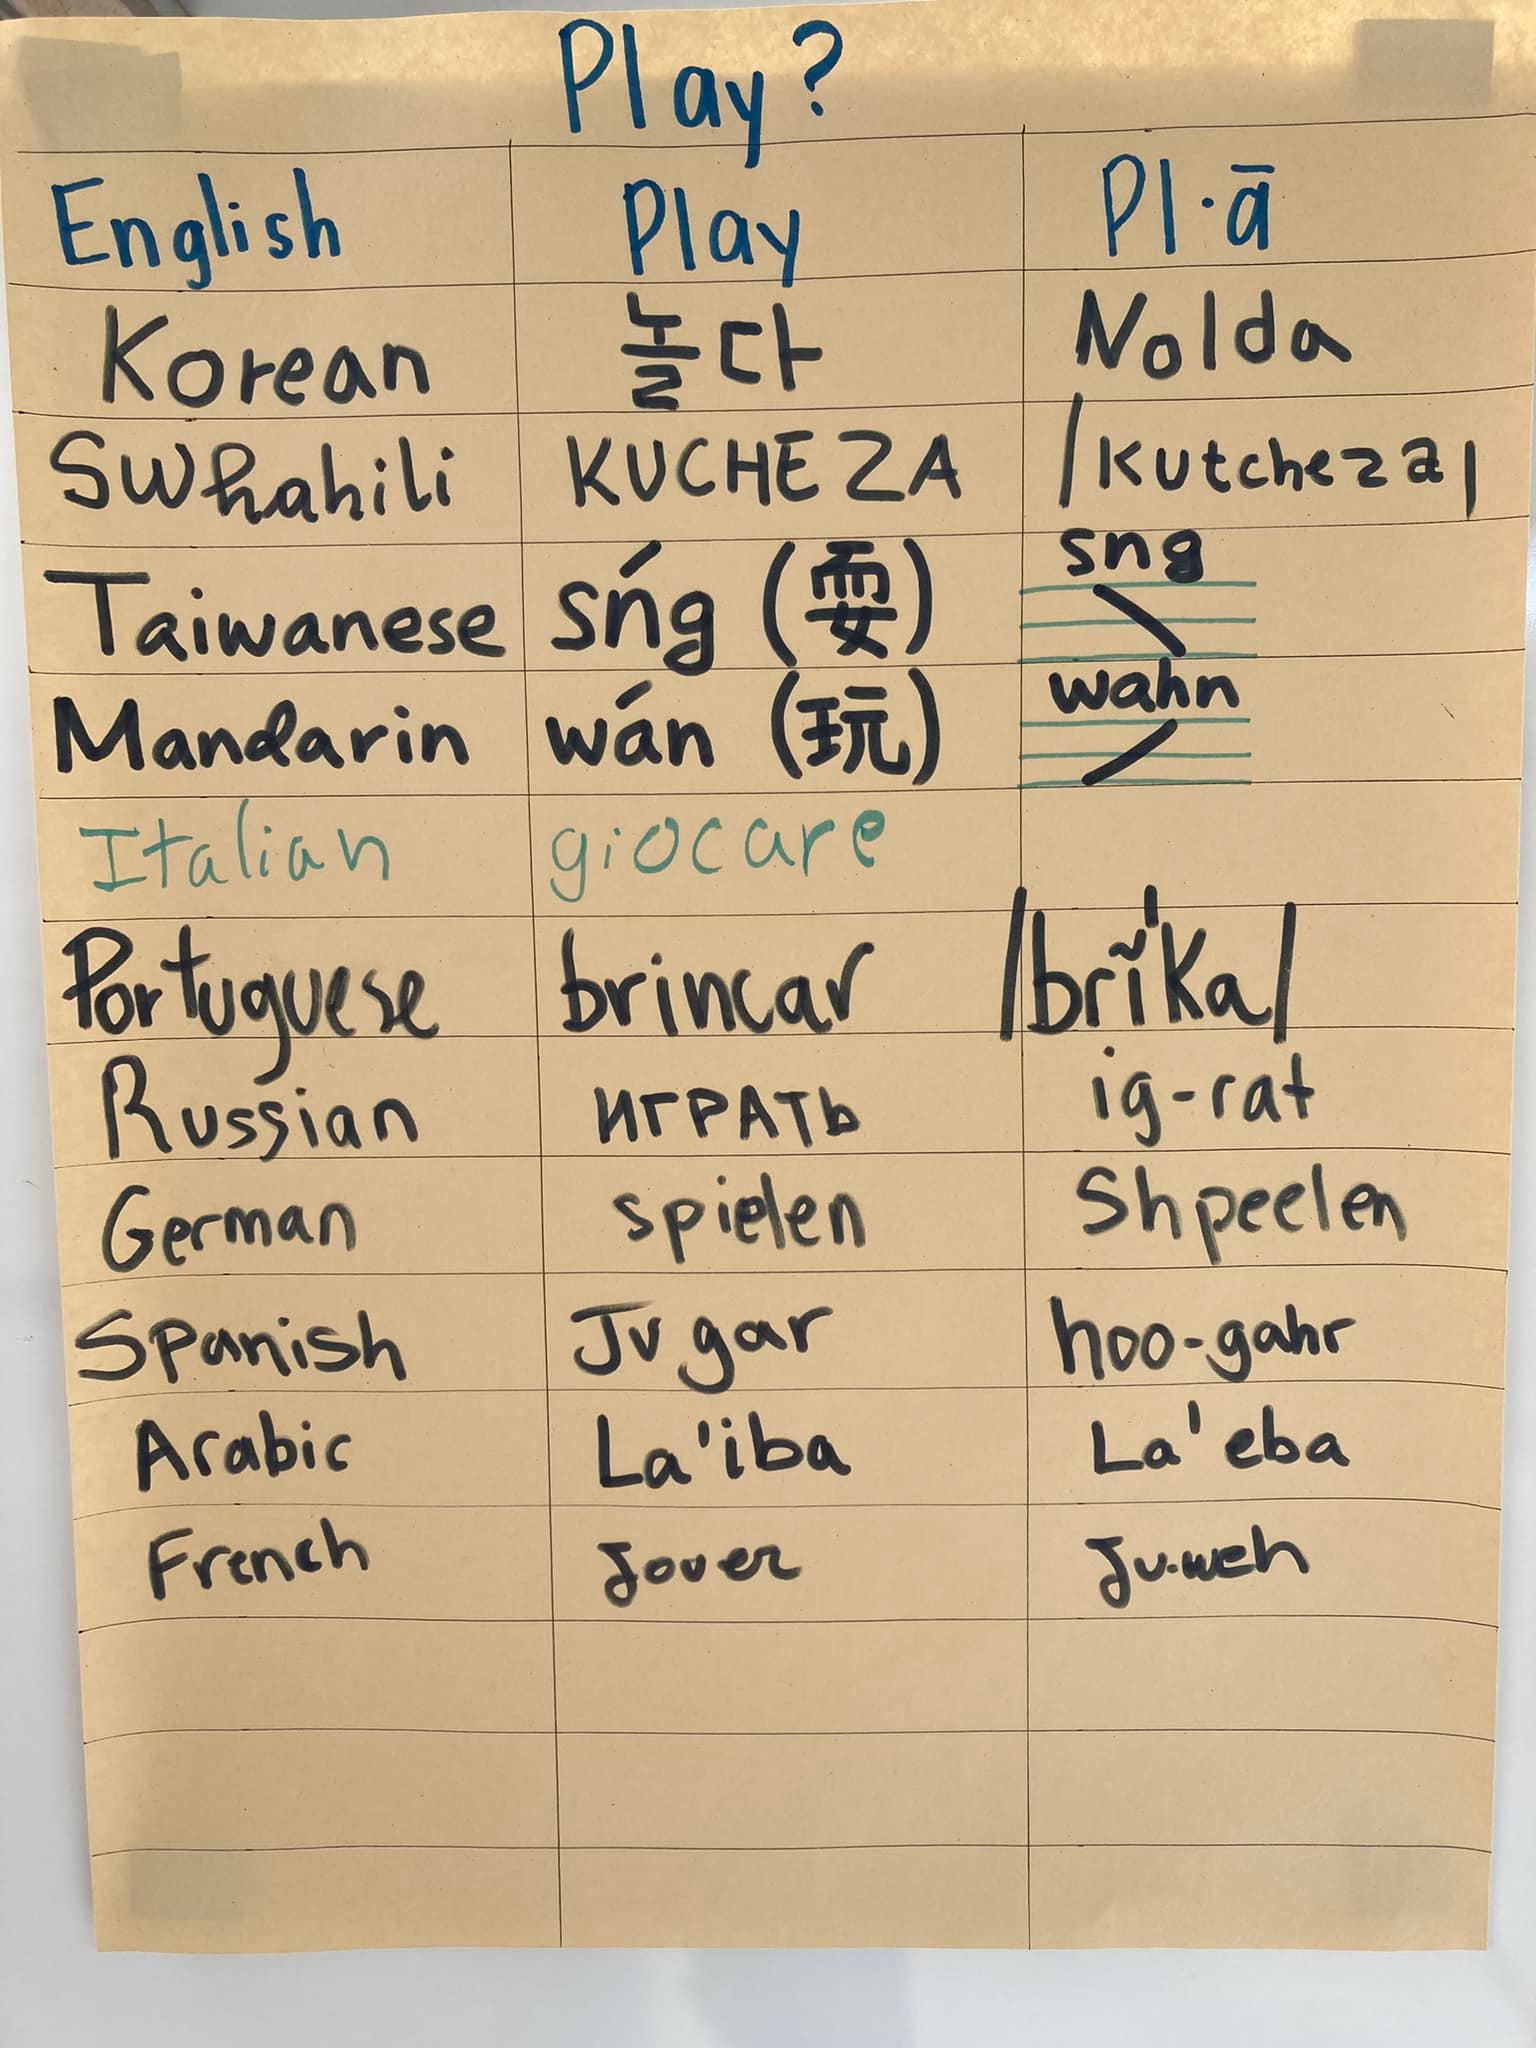 Play?
English Play Pl·ā
Korean 놀다 Nolda
SWhahili KUCHEZA /kutcheza/
Taiwanese sńg (耍) sng
Mandarin wán (玩) wahn
Italian giocare
Portuguese brincar /brĩ'ka/
Russian ИГРАТЬ ig-rat
German spielen Shpeelen
Spanish Jugar hoo-gahr
Arabic La'iba La'eba
French Jouer Ju-weh